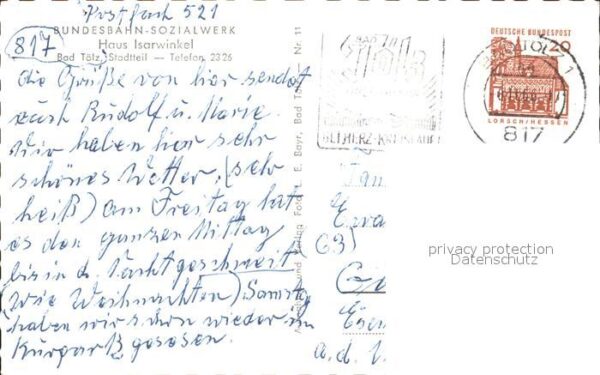 Postfach 521
(817)
BUNDESBAHN-SOZIALWERK
Haus Isarwinkel
Bad Tölz, Stadtteil — Telefon 2326
die Grüße von hier sendet
euch Rudolf u. Marie.
Wir haben hier sehr
schönes Wetter, (sehr
heiß) am Freitag hat
es den ganzen Mittag
bis in d. Nacht geschneit
(wie Weihnachten) Samstag
haben wir schon wieder im
Kurpark gesessen.
Nr. 11
Verlag Foto E. Bayr, Bad Tölz
BAD TÖLZ
BEI HERZ-KREISLAUF
DEUTSCHE BUNDESPOST
20
LORSCH/HESSEN
BAD TÖLZ 1
817
Fam
(63)
a.d.
privacy protection
Datenschutz